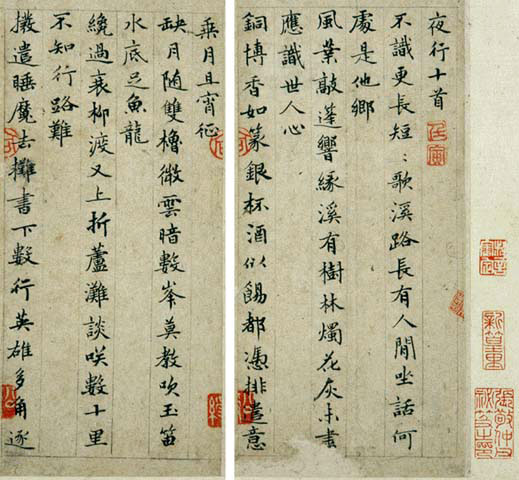 夜行十首
不識更長短〻歌溪路長有人閒坐話何
處是他鄉
風葉敲蓬響緣溪有樹林燭花灰未
應識世人心
銅博香如篆銀杯酒似餳都憑排遣意
乘月且宵征
缺月隨雙櫓微雲暗數峯莫教吹玉笛
水底足魚龍
纔過衰柳渡又上折蘆灘談咲數十里
不知行路難
撥遣睡魔去攤書下數行英雄多角逐
新篁里